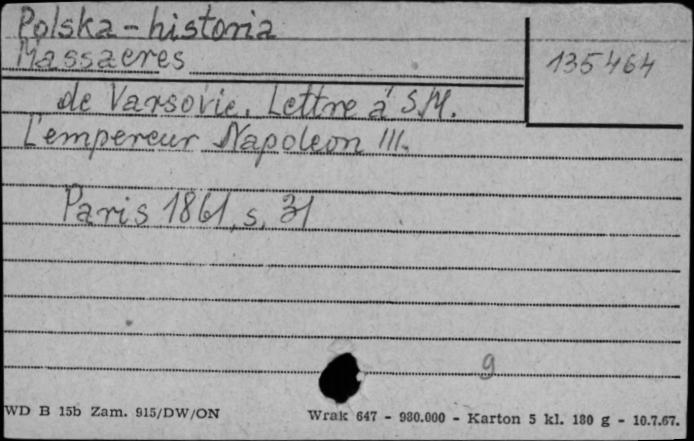 Polska - historia
Massacres
135464
de Varsovie. Lettre à S.M.
L'empereur Napoleon III.
Paris 1861, s. 31
9
WD B 15b Zam. 915/DW/ON
Wrak 647 - 980.000 - Karton 5 kl. 180 g - 10.7.67.